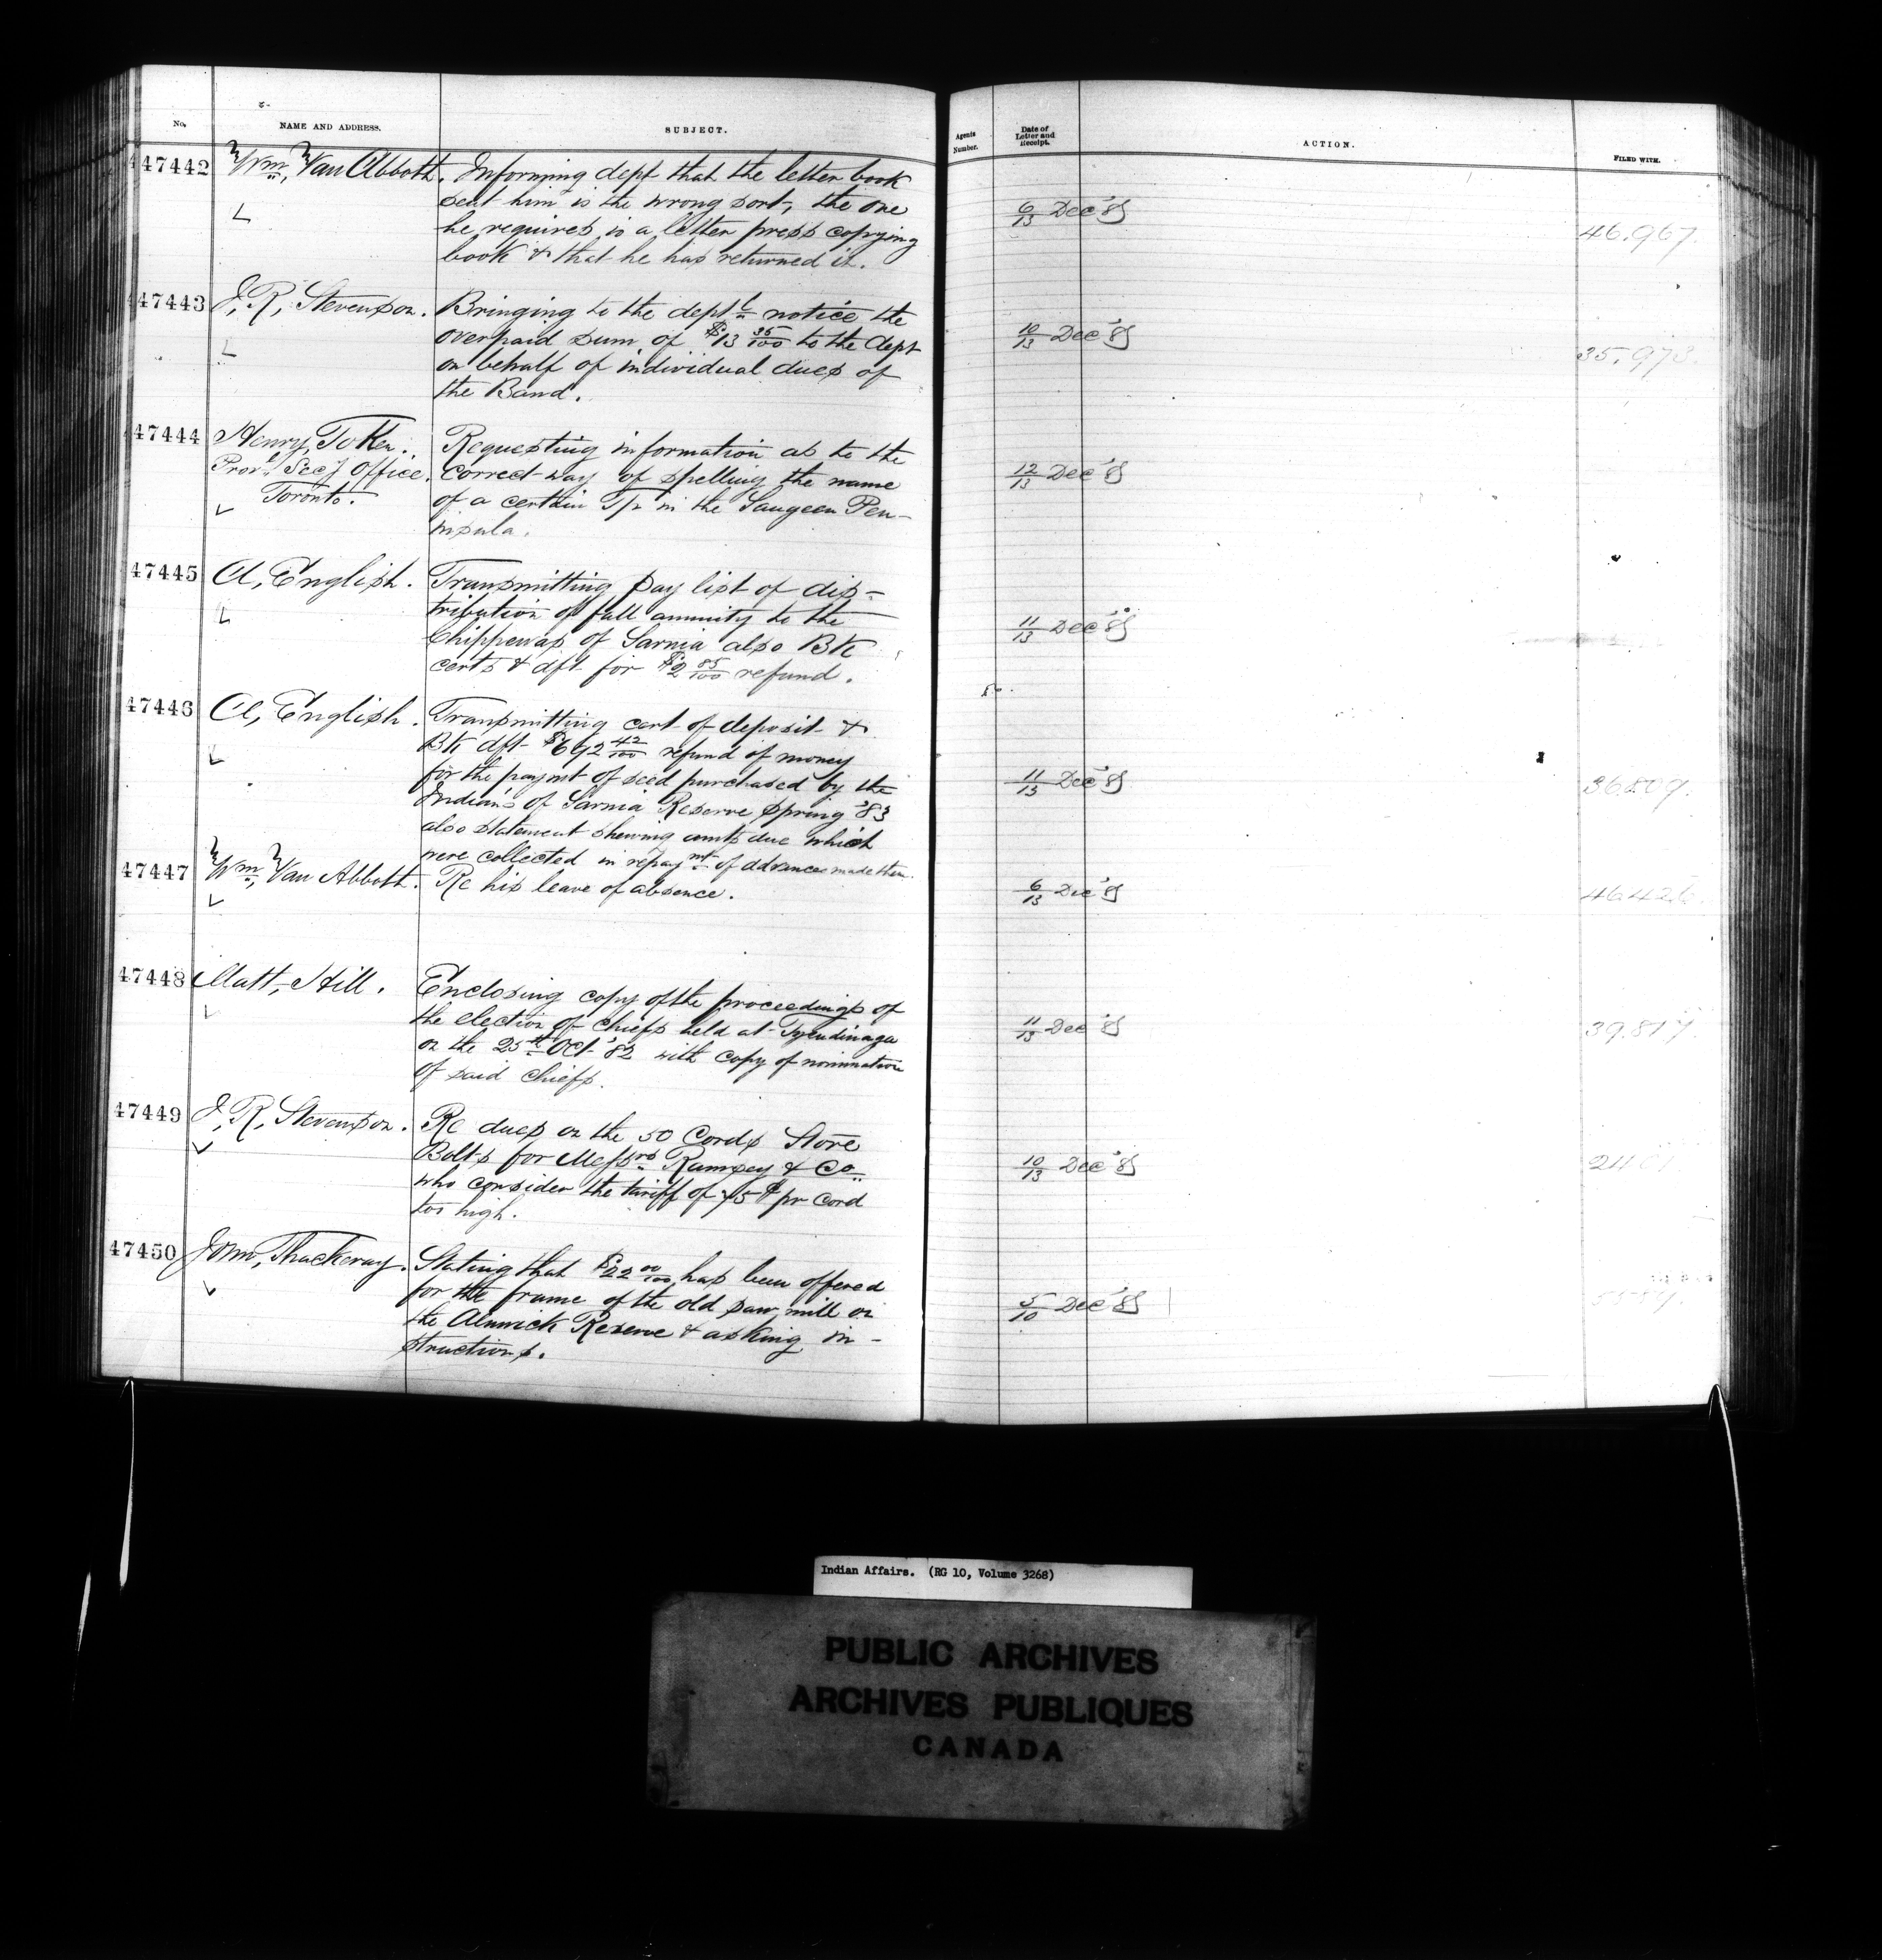 No.
NAME AND ADDRESS.
SUBJECT.
Agents Number.
Date of Letter and Receipt.
ACTION.
FILED WITH.
47442
Wm, Van Abbott.
Informing dept that the letter book
sent him is the wrong sort, the one
he requires is a letter press copying
book & that he has returned it.
6/13 Dec '8
46.967.
47443
J, R, Stevenson.
Bringing to the dept notice the
overpaid sum of $13 35/100 to the dept
on behalf of individual dues of
the Band.
10/13 Dec '8
35.973.
47444
Henry,
Provl Secy Office.
Toronto.
Requesting information as to the
correct way of spelling the name
of a certain Tp in the Saugeen Pen-
insula.
12/13 Dec '8
47445
A, English.
Transmitting pay list of dis-
tribution of fall annuity to the
Chippewas of Sarnia also Bk
certs & dft for $2 85/100 refund.
11/13 Dec '8
47446
A, English.
Transmitting cert of deposit &
Bk dft $692 42/100 refund of money
for the paymt of seed purchased by the
Indians of Sarnia Reserve spring '83
also statement shewing amts due which
were collected in repaymt of advances made them.
11/13 Dec '8
47447
Wm, Van Abbott.
Re his leave of absence.
6/13 Dec '8
46426.
47448
Matt, Hill.
Enclosing copy of the proceedings of
the election of chiefs held at Tyendinaga
on the 25th Oct '82 with copy of nomination
of said chiefs.
11/13 Dec '8
47449
J, R, Stevenson.
Re dues on the 50 Cords Stove
Bolts for Messrs Rumsey & Co
who consider the tariff of 75 ¢ pr Cord
too high.
10/13 Dec '8
47450
John, Thackeray.
Stating that $22 00/100 has been offered
for the frame of the old saw mill on
the Alnwick Reserve & asking in-
structions.
5/10 Dec '8
Indian Affairs. (RG 10, Volume 3268)
PUBLIC ARCHIVES
ARCHIVES PUBLIQUES
CANADA